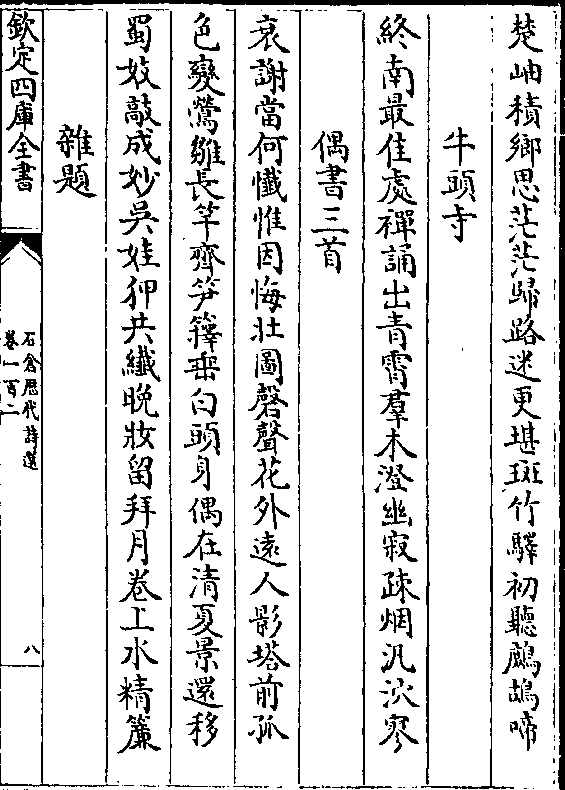 楚岫積鄉思茫茫歸路迷更堪斑竹驛初聽鷓鴣啼
牛頭寺
終南最佳處禪誦出青霄羣木澄幽寂疎烟汎泬寥
偶書三首
衰謝當何懺惟因悔壯圖磬聲花外遠人影塔前孤
色變鶯雛長竿齊笋籜垂白頭身偶在清夏景還移
蜀妓敲成妙吳娃狎共纖晚妝留拜月卷上水精簾
雜題
欽定四庫全書
石倉歷代詩選
卷一百二
八